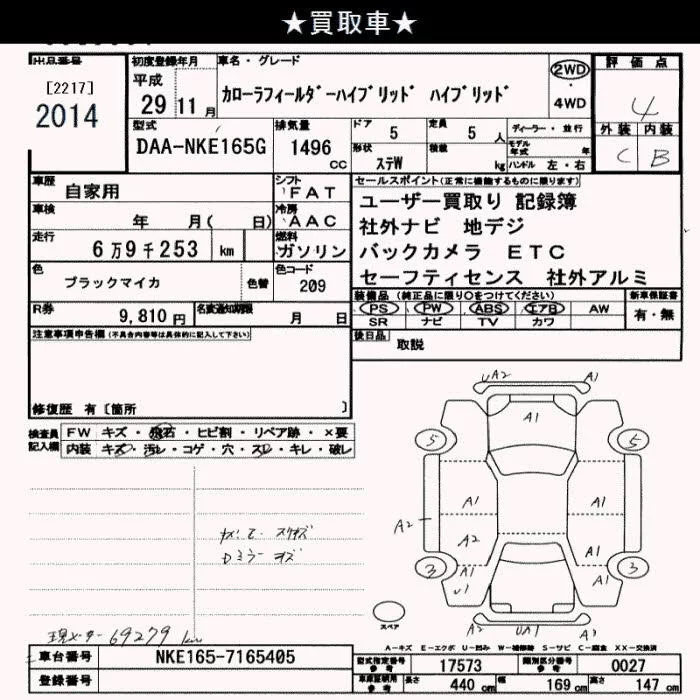 ★買取車★
出品番号 初度登録年月 車名・グレード 評価点
[2217]
2014
平成
29 11 月
カローラフィールダーハイブリッド ハイブリッド
2WD
・
4WD
4
外装 内装
C B
型式 排気量 ドア 定員 ディーラー・並行
DAA-NKE165G 1496 cc 5 5 人
形状 積載 モデル年式 年
ステW kg ハンドル 左・右
車歴 自家用 シフト FAT
車検 年 月( 日) 冷房 AAC
走行 6万9千253 km 燃料 ガソリン
色 ブラックマイカ 色替 色コード 209
R券 9,810円 名変通知期限 月 日
セールスポイント(正常に機能するものに限ります)
ユーザー買取り 記録簿
社外ナビ 地デジ
バックカメラ ETC
セーフティセンス 社外アルミ
装備品 (純正品に限り○をつけてください) 新車保証書
PS PW ABS エアB AW 有・無
SR ナビ TV カワ
後日品 取説
注意事項申告欄(不具合内容等は具体的に記入して下さい)
修復歴 有〔箇所 〕
検査員記入欄 FW キズ・飛石・ヒビ割・リペア跡・×要
内装 キズ・汚レ・コゲ・穴・スレ・キレ・破レ
UA2 A1
A1
5 5
A1 A1
A2 A2 A1
3 A1 A1 3
U1
A2 UA1 A2
スペア
現メーター 69279 km
A-キズ E-エクボ U-凹み W-補修跡 S-サビ C-腐食 XX-交換済
車台番号 NKE165-7165405
登録番号
型式指定番号 参考 17573 類別区分番号 参考 0027
車庫証明用 参考 長さ 440 cm 幅 169 cm 高さ 147 cm